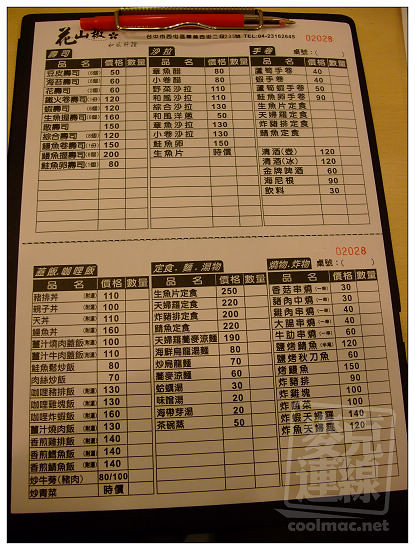 花山椒
台中市西屯區 TEL:04-23162645
02028
壽司 沙拉 手卷 桌號:( )
品名 價格 數量 品名 價格 數量 品名 價格 數量
豆皮壽司(6個) 50 章魚醋 80 蘆筍手卷 40
海苔壽司(6個) 60 小卷醋 80 蝦手卷 40
花壽司(6個) 60 野菜沙拉 110 蘆筍蝦手卷 50
鐵火卷壽司 120 和風沙拉 110 鮭魚卵手卷 90
蝦壽司 120 綜合沙拉 130 生魚片定食
生魚握壽司 160 和風洋蔥 50 天婦羅定食
散壽司 150 章魚沙拉 130 炸豬排定食
綜合壽司 130 鮭魚卵 150 鯖魚定食
鰻魚卷壽司 150 生魚片 時價
鰻魚握壽司 200 清酒(壺) 120
鮭魚卵壽司 80 清酒(冰) 120
金牌啤酒 60
海尼根 90
飲料 30
02028
蓋飯.咖哩飯 定食.麵.湯物 燒物.炸物 桌號:( )
品名 價格 數量 品名 價格 數量 品名 價格 數量
豬排丼 110 生魚片定食 250 香菇串燒 30
親子丼 100 天婦羅定食 220 豬肉中燒 30
天丼 110 炸豬排定食 200 雞肉串燒 40
鰻魚丼 160 鯖魚定食 220 大腸串燒 40
薑汁燒肉蓋飯 100 天婦羅蕎麥涼麵 190 牛肋串燒 60
薑汁牛肉蓋飯 110 海鮮烏龍湯麵 80 鹽烤鯖魚 120
鮭魚鬆炒飯 80 炒烏龍麵 70 鹽烤秋刀魚 60
肉絲炒飯 70 蕎麥涼麵 60 烤鰻魚 150
咖哩豬排飯 130 蛤蠣湯 30 炸豬排 90
咖哩雞塊飯 130 味噌湯 20 炸雞塊 100
咖哩炸蝦飯 160 海帶芽湯 20 炸蔬菜 100
薑汁燒肉飯 130 茶碗蒸 50 炸蝦天婦羅 140
香煎雞排飯 140 炸魚天婦羅 120
香煎鱈魚飯 140
香煎鯖魚飯 140
炒牛蒡(豬肉) 80/100
炒青菜 時價
coolmac.net